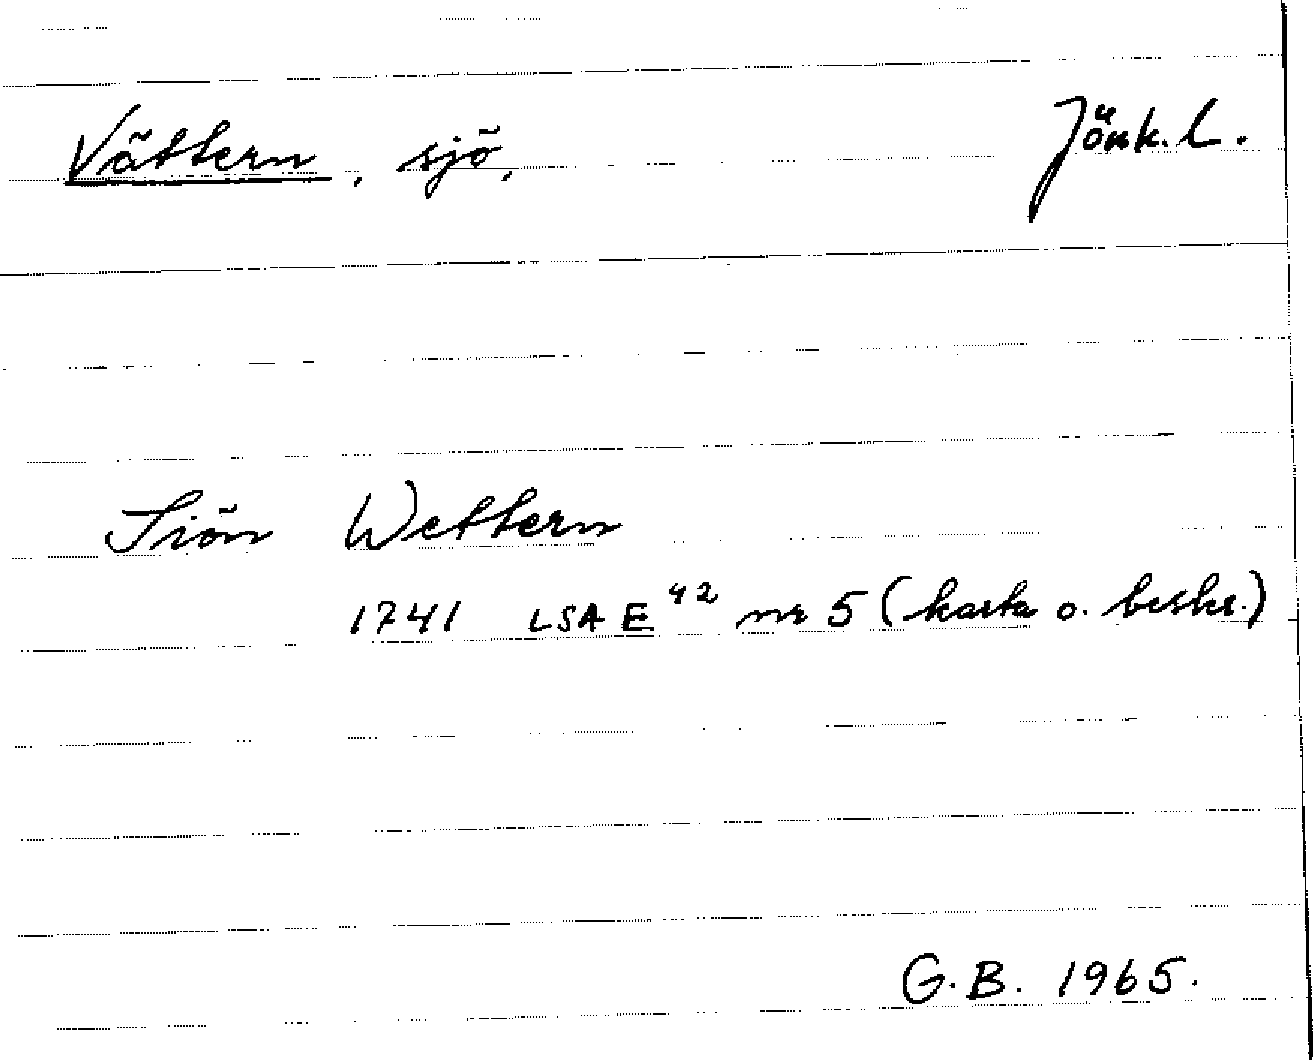 Vättern, sjö, Jönk. l.
Siön Wettern
1741 LSA E⁴² nr 5 (karta o. beskr.)
G.B. 1965.